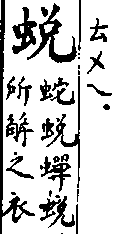 ㄊㄨㄟ.
蛻
蛇蛻蟬蛻
所解之衣